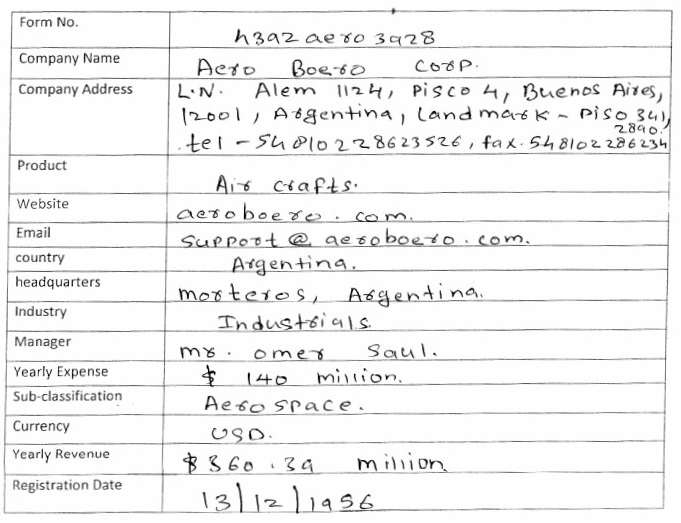 Form No. h392aero3928
Company Name Aero Boero Corp.
Company Address L.N. Alem 1124, Pisco 4, Buenos Aires,
12001, Argentina, Landmark - Piso 341,
tel - 54810228623526, fax. 548102286234
2890.
Product Air crafts.
Website aeroboero.com.
Email support@aeroboero.com.
country Argentina.
headquarters morteros, Argentina.
Industry Industrials.
Manager mr. omer Saul.
Yearly Expense $ 140 million.
Sub-classification Aerospace.
Currency USD.
Yearly Revenue $360.39 million
Registration Date 13/12/1956